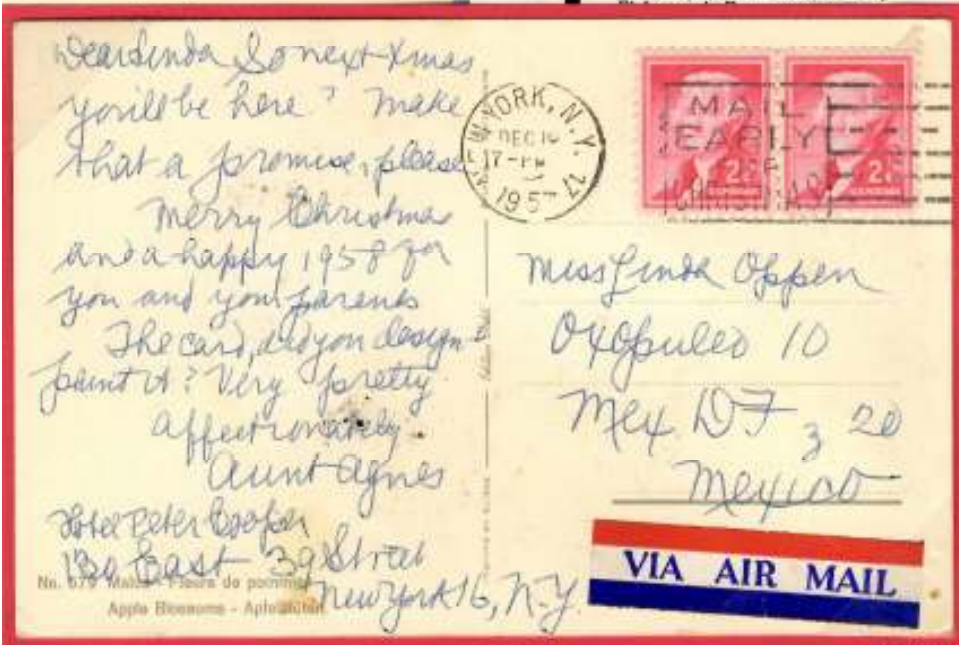 Dear Linda So next Xmas
you'll be here? Make
that a promise, please
Merry Christmas
and a happy 1958 for
you and your parents
The card, did you design
paint it? Very pretty
affectionately
Aunt Agnes
Hotel Peter Cooper
130 East 39 Street
New York 16, N.Y.
No. 579 Fleurs de pommier
Apple Blossoms - Apfelblüten
NEW YORK, N.Y. 17
DEC
17-PM
1957
MAIL
EARLY
FOR
CHRISTMAS
2¢
2¢
Miss Linda Oppen
10
Mex DF, 20
Mexico
VIA AIR MAIL